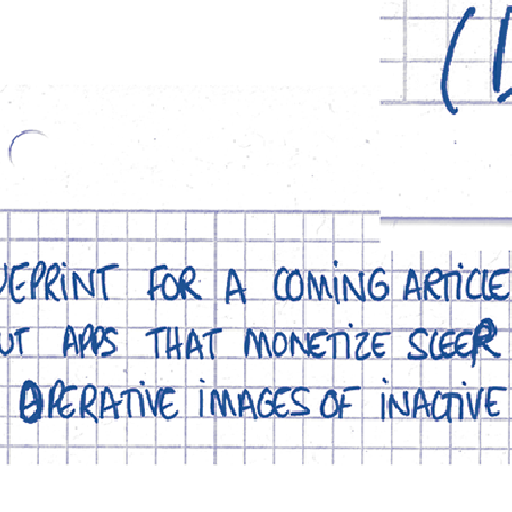 UEPRINT FOR A COMING ARTICLE
UT APPS THAT MONETIZE SLEEP
OPERATIVE IMAGES OF INACTIVE